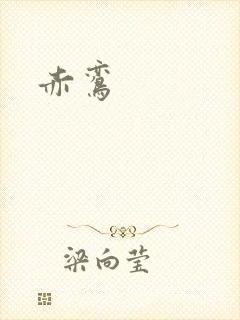 赤鸾
梁向莹